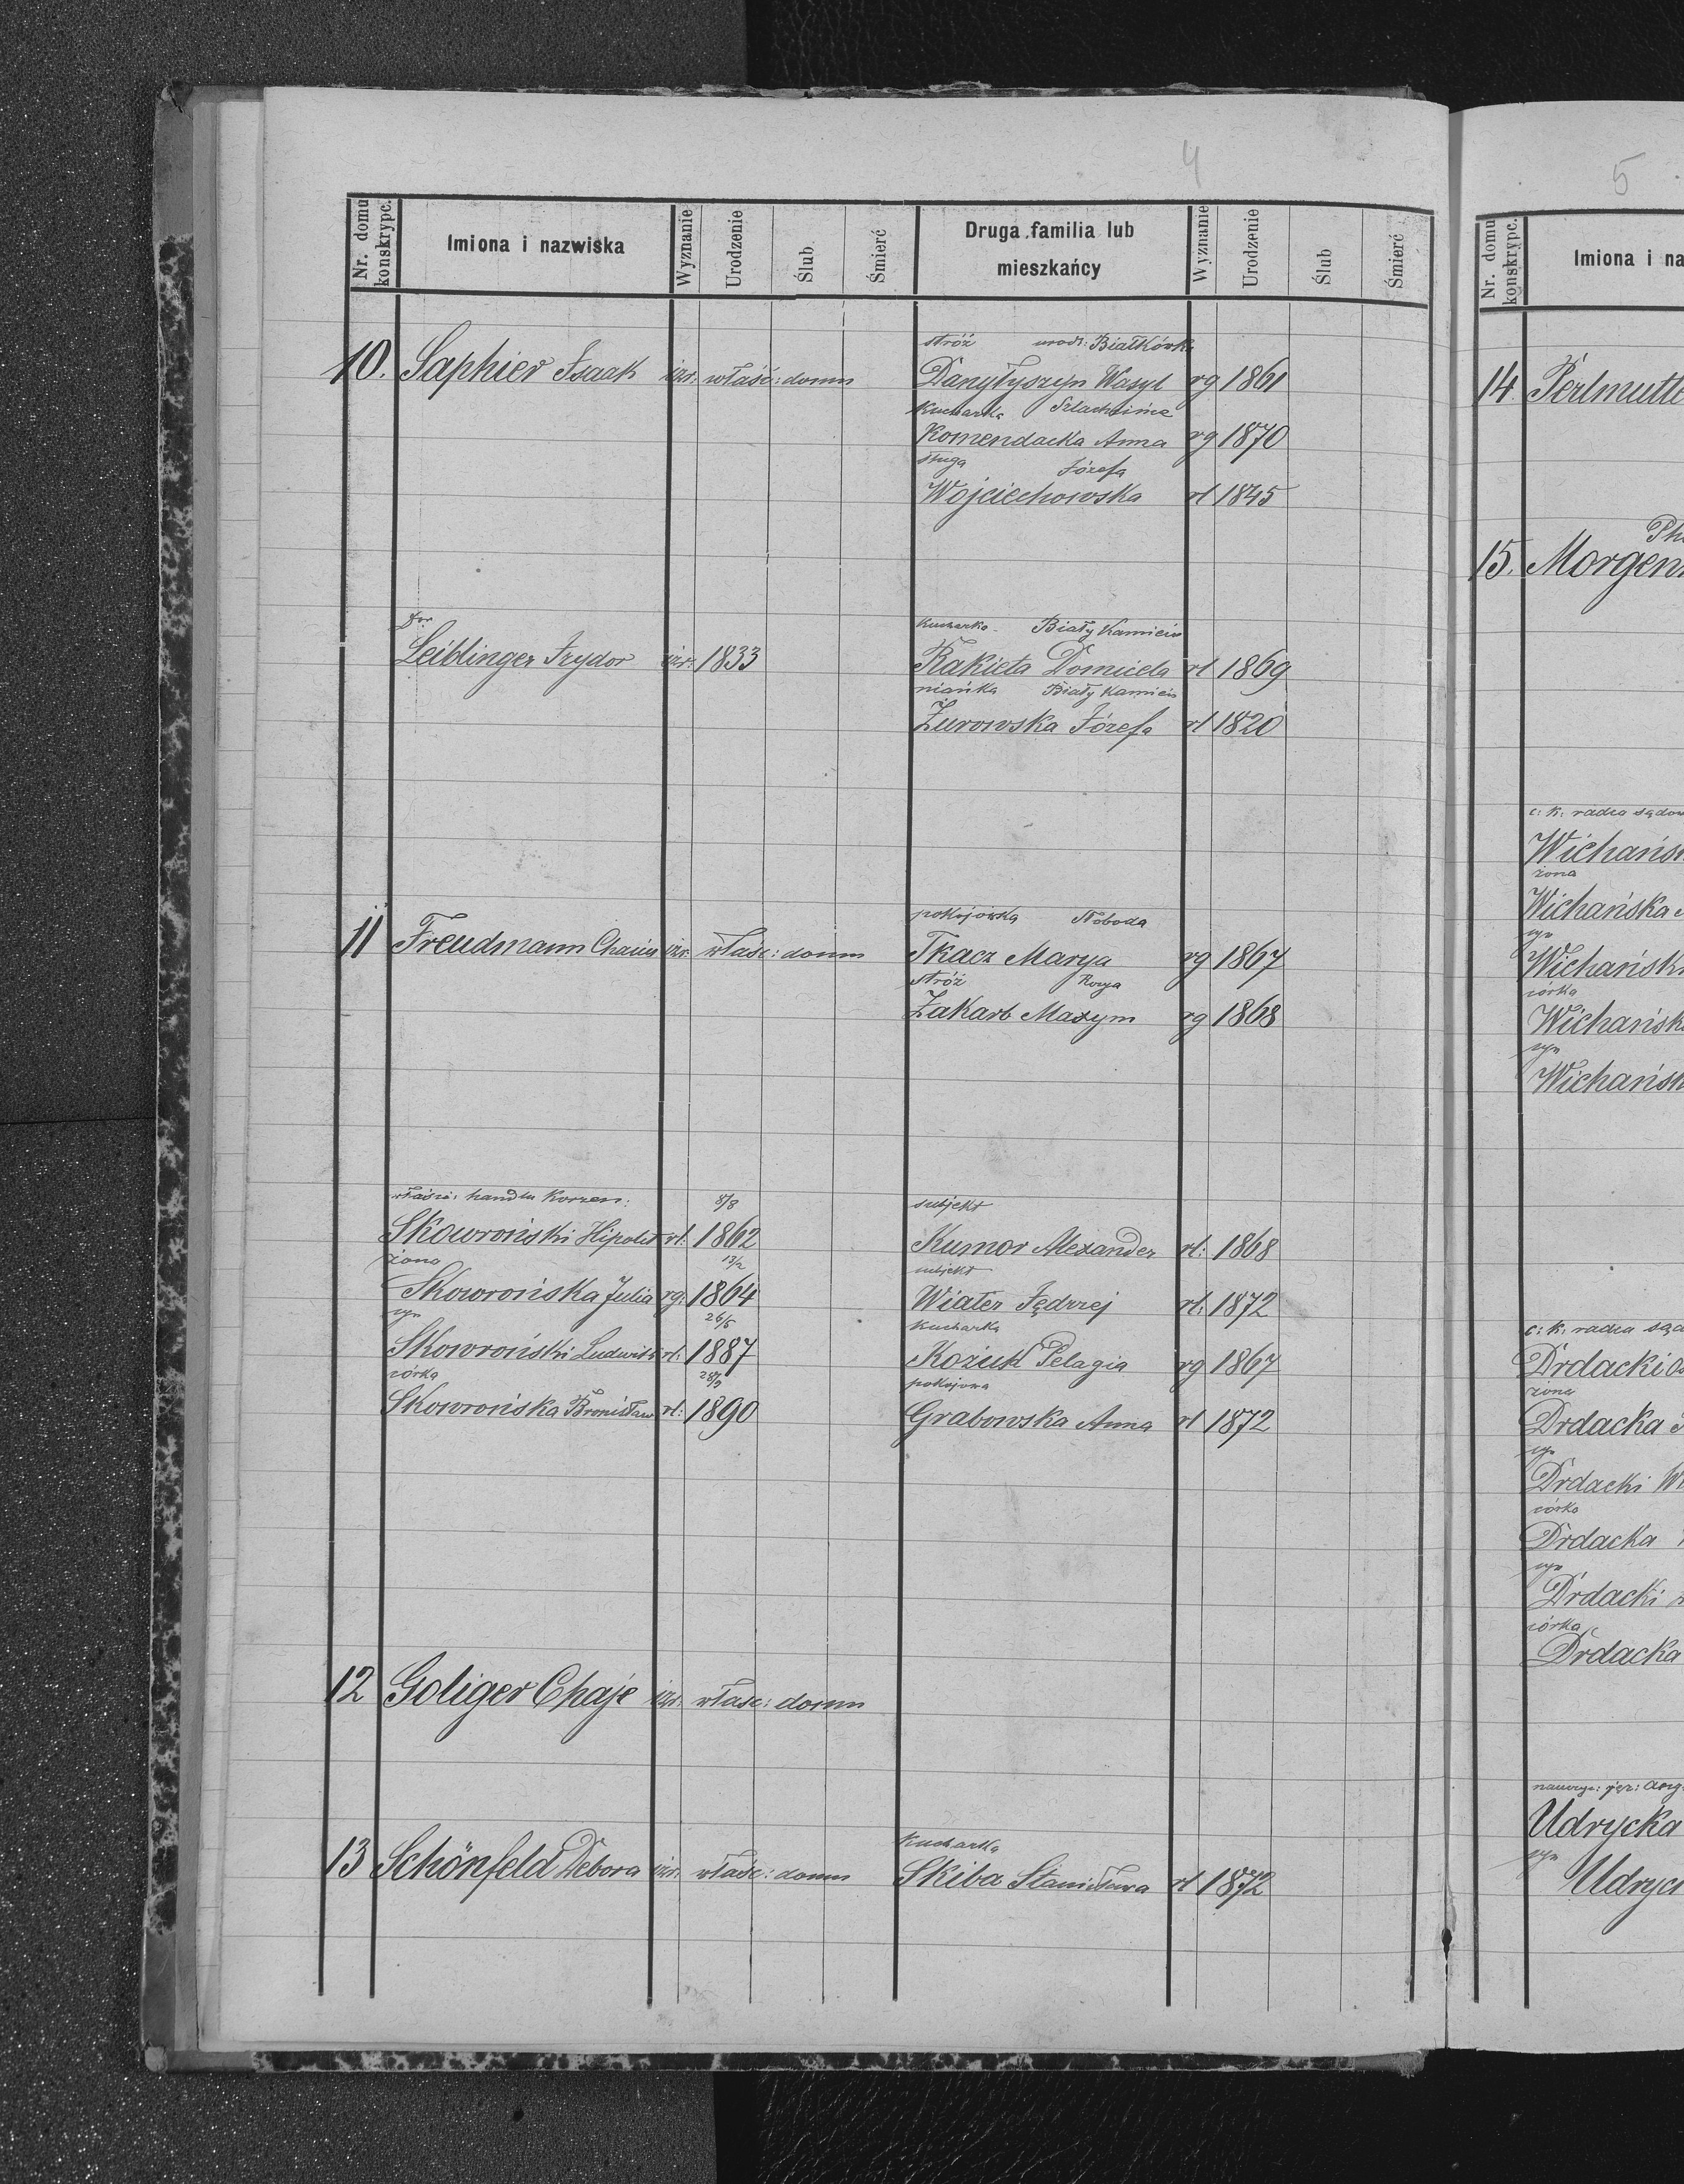 4
Nr. domu konskrypc.
Imiona i nazwiska
Wyznanie
Urodzenie
Ślub
Śmierć
Druga familia lub mieszkańcy
Wyznanie
Urodzenie
Ślub
Śmierć
stróż urodz: Białkówka
10. Saphier Isaak izr: właść: domu Danyłyszyn Wasyl rg 1861
Kucharka
Komendacka Anna rg 1870
sługa Józefa
Wojciechowska rl 1845
Dor Kucharka Biały Kamień
Leiblinger Izydor izr: 1833 Rakieta Domicela rl 1869
niańka Biały Kamień
Żurowska Józefa rl 1820
pokojówka Słoboda
11 Freudmann Chaim izr. właśc: domu Tkacz Marya rg 1867
stróż
Zakarb Maxym rg 1868
właści: handlu Korzen: 8/8 subjekt
Skowroński Hipolit rl: 1862 Kumor Alexander rl: 1868
żona 13/2 subjekt
Skowrońska Julia rg: 1864 Wiater Jędrzej rl: 1872
syn 26/5 Kucharka
Skowroński Ludwik rl: 1887 Kożuch Pelagia rg 1867
córka 28/9 pokojowa
Skowrońska Bronisław rl: 1890 Grabowska Anna rl 1872
12 Goliger Chaje izr. właśc: domu
Kucharka
13 Schönfeld Debora izr. właśc: domu Skiba Stanisława rl 1872
5
Nr. domu konskrypc.
Imiona i na
14 Perlmutte
15. Morgen
c: k: radca sądow
Wichańsk
żona
Wichańska
syn
Wichańsk
córka
Wichańsk
syn
Wichańsk
c: k: radca sąd
Drdacki
żona
Drdacka
syn
Drdacki
córka
Drdacka
syn
Drdacki
córka
Drdacka
Udrycka
syn
Udryc